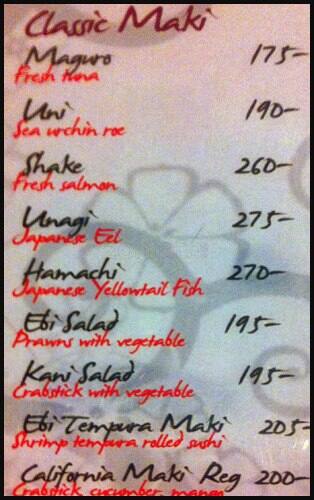 Classic Maki
Maguro 175-
Fresh tuna
Uni 190-
Sea urchin roe
Shake 260-
Fresh salmon
Unagi 275-
Japanese Eel
Hamachi 270-
Japanese Yellowtail Fish
Ebi Salad 195-
Prawns with vegetable
Kani Salad 195-
Crabstick with vegetable
Ebi Tempura Maki 205-
Shrimp tempura rolled sushi
California Maki Reg 200-
Crabstick cucumber mango